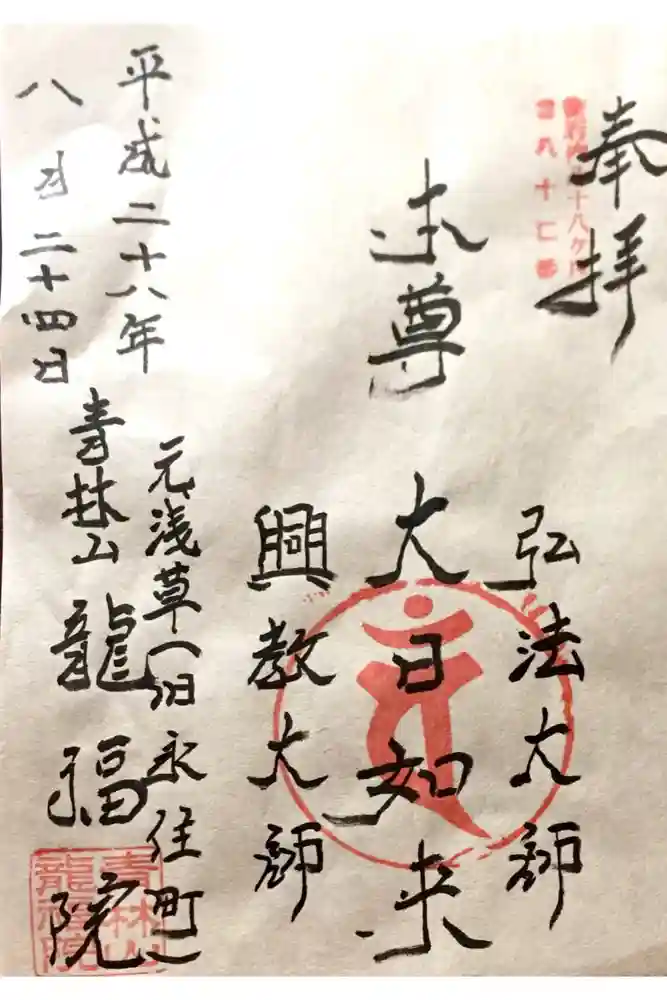 奉拝
八十八ヶ所
八十七番
弘法大師
本尊 大日如来
興教大師
元浅草(旧永住町)
平成二十八年
青林山 龍福院
八月二十四日
青林山
龍福院